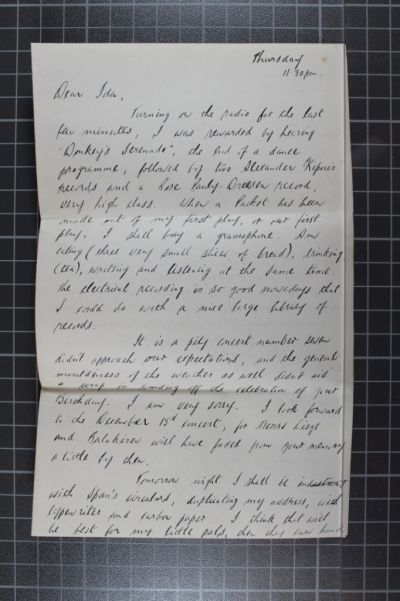 Thursday
11.30pm.
Dear Ida,
Turning on the radio for the last
few minutes, I was rewarded by hearing
"Donkey's Serenade", the end of a dance
programme, followed by two Alexander Kipnis
records and a Rose Pauly-Dreesen record,
very high class. When a Packet has been
made out of my first play, or our first
play, I shall buy a gramophone. Am
eating (three very small slices of bread), drinking
(tea), writing and listening at the same time.
The electrical recording is so good nowadays that
I could do with a nice large library of
records.
It is a pity concert number seven
didn't approach our expectations, and the general
of the weather as well didn't aid
a in off the celebration of your
Birthday. I am very sorry. I look forward
to the December 15th concert, for Messrs Liszt
and Balakirev will have faded from your memory
a little by then.
Tomorrow night I shall be
with Spain's circulars, duplicating my address, with
typewriter and carbon paper. I think that will
be best for my little pals, then they